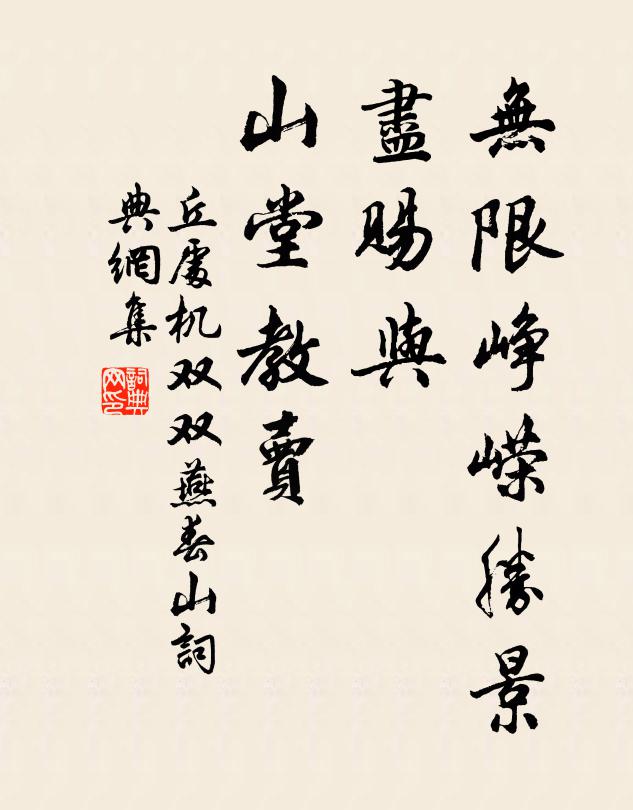 無限崢嶸勝景
盡賜與
山堂教賣
丘處机双双燕春山詞
典網集
詞典
网印